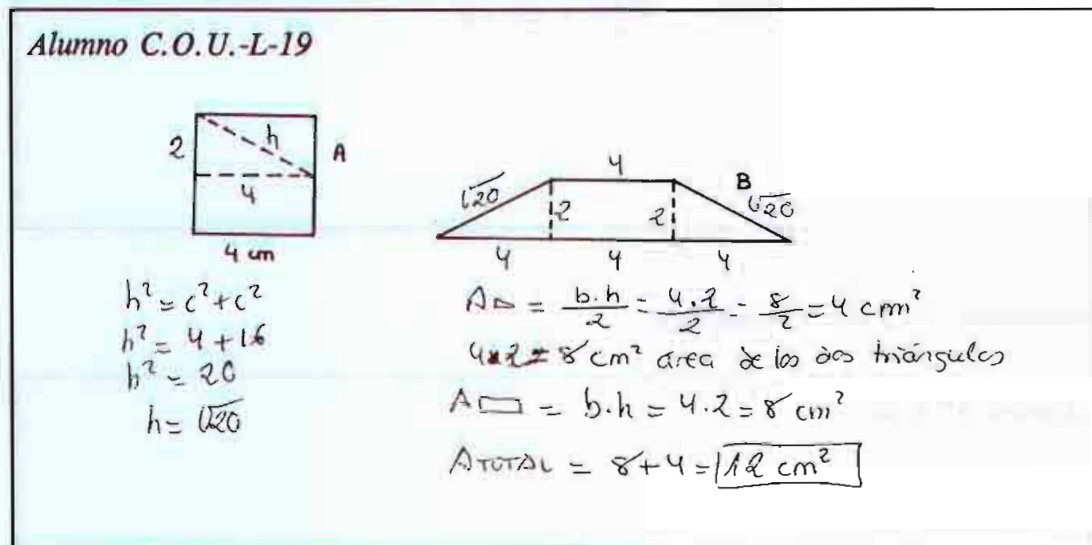 Alumno C.O.U.-L-19
2
h
A
4
4 cm
4
√20
2
2
B
√20
4
4
4
h² = c² + c²
h² = 4 + 16
h² = 20
h = √20
A△ = b.h/2 = 4.2/2 = 8/2 = 4 cm²
4*2 = 8 cm² area de los dos triángulos
A▭ = b.h = 4.2 = 8 cm²
ATOTAL = 8+4 = 12 cm²